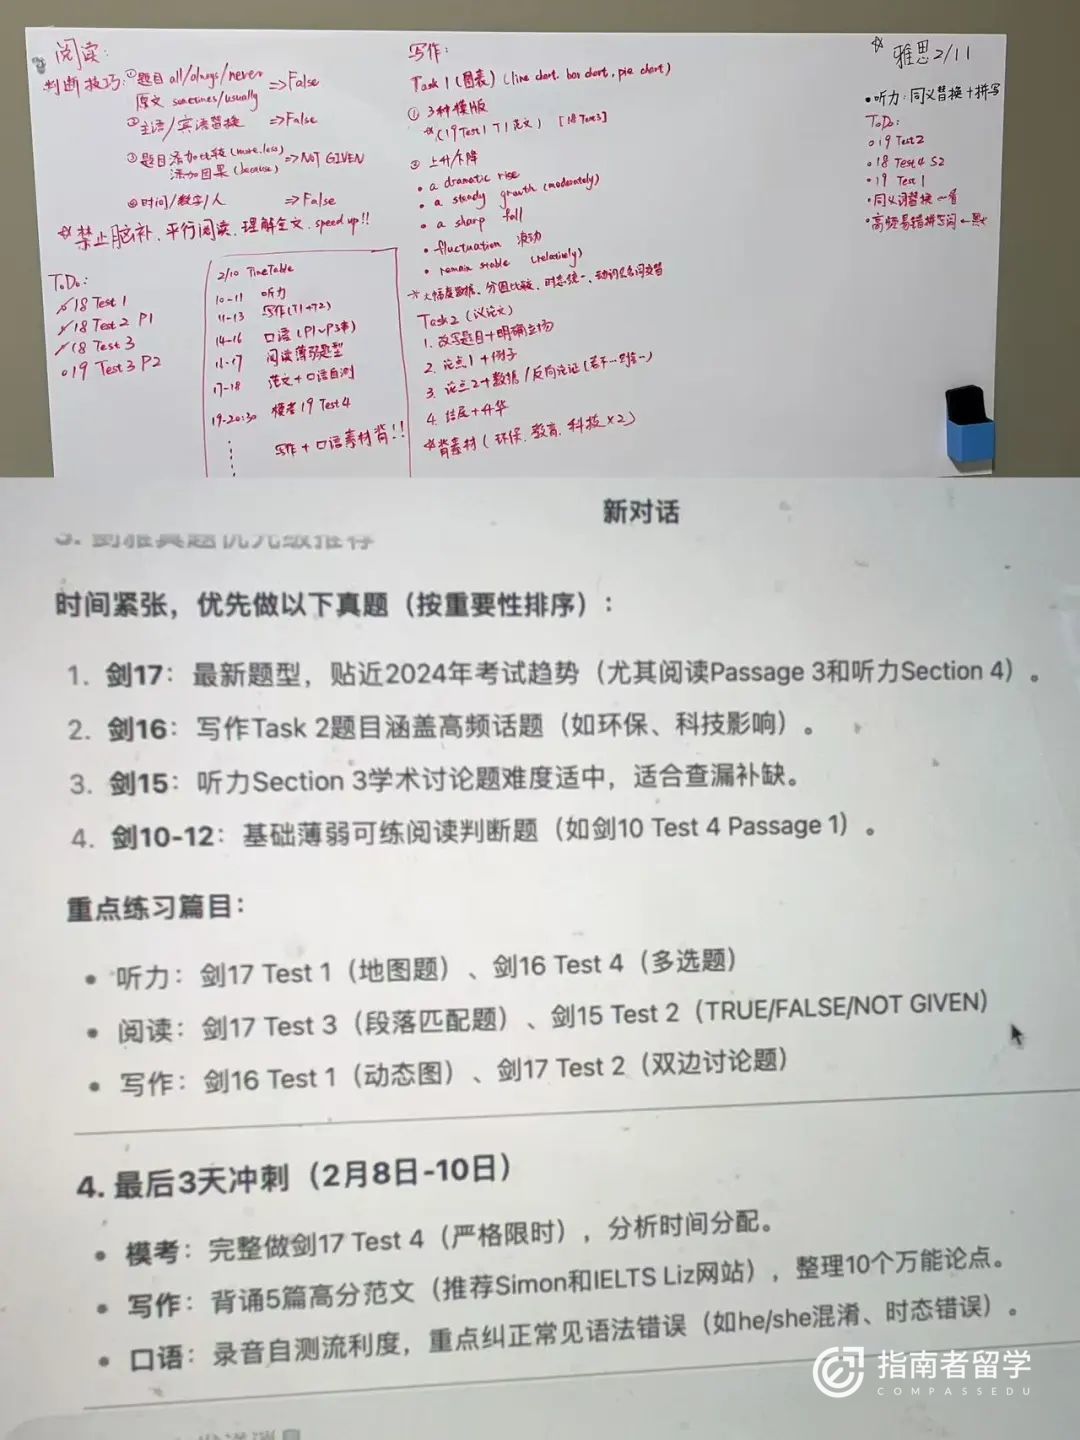 阅读:
判断技巧: ①题目 all/always/never
原文 sometimes/usually => False
②主语/宾语替换 => False
③题目添加比较(more.less)
添加因果(because) => NOT GIVEN
④时间/数字/人 => False
☆禁止脑补、平行阅读、理解全文、speed up!!
ToDo:
18 Test 1
18 Test 2 P1
18 Test 3
19 Test 3 P2
2/10 TimeTable
10-11 听力
11-13 写作(T1+T2)
14-16 口语(P1~P3串)
16-17 阅读薄弱题型
17-18 范文+口语自测
19-20:30 模考19 Test 4
写作+口语素材背!!
写作:
Task 1 (图表) (line chart, bar chart, pie chart)
① 3种模版
☆(19 Test 1 T1 范文) [18 Test3]
② 上升/下降
• a dramatic rise
• a steady growth (moderately)
• a sharp fall
• fluctuation 波动
• remain stable (relatively)
大幅度数据、分图比较、时态统一、动词&名词交替
Task2 (议论文)
1. 改写题目+明确立场
2. 论点1+例子
3. 论点2+数据/反向论证
4. 结尾+升华
☆背素材(环保、教育、科技×2)
☆ 雅思2/11
• 听力: 同义替换+拼写
ToDo:
19 Test2
18 Test4 S2
19 Test 1
• 同义词替换一看
• 高频易错拼写词
新对话
3. 剑雅真题优先级推荐
时间紧张，优先做以下真题（按重要性排序）：
1. 剑17：最新题型，贴近2024年考试趋势（尤其阅读Passage 3和听力Section 4）。
2. 剑16：写作Task 2题目涵盖高频话题（如环保、科技影响）。
3. 剑15：听力Section 3学术讨论题难度适中，适合查漏补缺。
4. 剑10-12：基础薄弱可练阅读判断题（如剑10 Test 4 Passage 1）。
重点练习篇目：
• 听力：剑17 Test 1（地图题）、剑16 Test 4（多选题）
• 阅读：剑17 Test 3（段落匹配题）、剑15 Test 2（TRUE/FALSE/NOT GIVEN）
• 写作：剑16 Test 1（动态图）、剑17 Test 2（双边讨论题）
4. 最后3天冲刺（2月8日-10日）
• 模考：完整做剑17 Test 4（严格限时），分析时间分配。
• 写作：背诵5篇高分范文（推荐Simon和IELTS Liz网站），整理10个万能论点。
• 口语：录音自测流利度，重点纠正常见语法错误（如he/she混淆、时态错误）。
指南者留学
COMPASSEDU